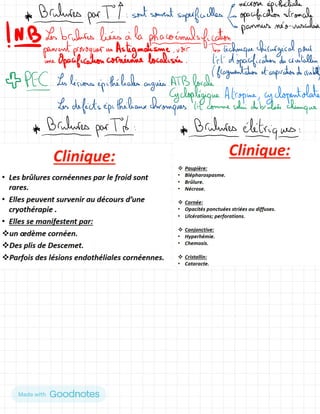 nécrose épithéliale
* Brûlures par T°↑ : sont souvent superficielles opacification stromale
pannus néo-vasculaire
!NB Les brûlures liées à la phacoémulsification
peuvent provoquer un Astigmatisme, voir
une Opacification cornéenne localisée.
la technique chirurgical pour
ttt d'opacification du cristallin
(fragmentation et aspiration du cristallin)
+ PEC Les lésions épithéliales aigües ATB locale
Cycloplégique Atropine, cyclopentolate
Les défects épithéliaux chroniques ttt comme celui de brûlure chimique
* Brûlures par T°↓ :
* Brûlures éléctriques :
Clinique:
• Les brûlures cornéennes par le froid sont
rares.
• Elles peuvent survenir au décours d'une
cryothérapie .
• Elles se manifestent par:
❖un œdème cornéen.
❖Des plis de Descemet.
❖Parfois des lésions endothéliales cornéennes.
Clinique:
❖ Paupière:
• Blépharospasme.
• Brûlure.
• Nécrose.
❖ Cornée:
• Opacités ponctuées striées ou diffuses.
• Ulcérations; perforations.
❖ Conjonctive:
• Hyperhémie.
• Chemosis.
❖ Cristallin:
• Cataracte.
Made with Goodnotes